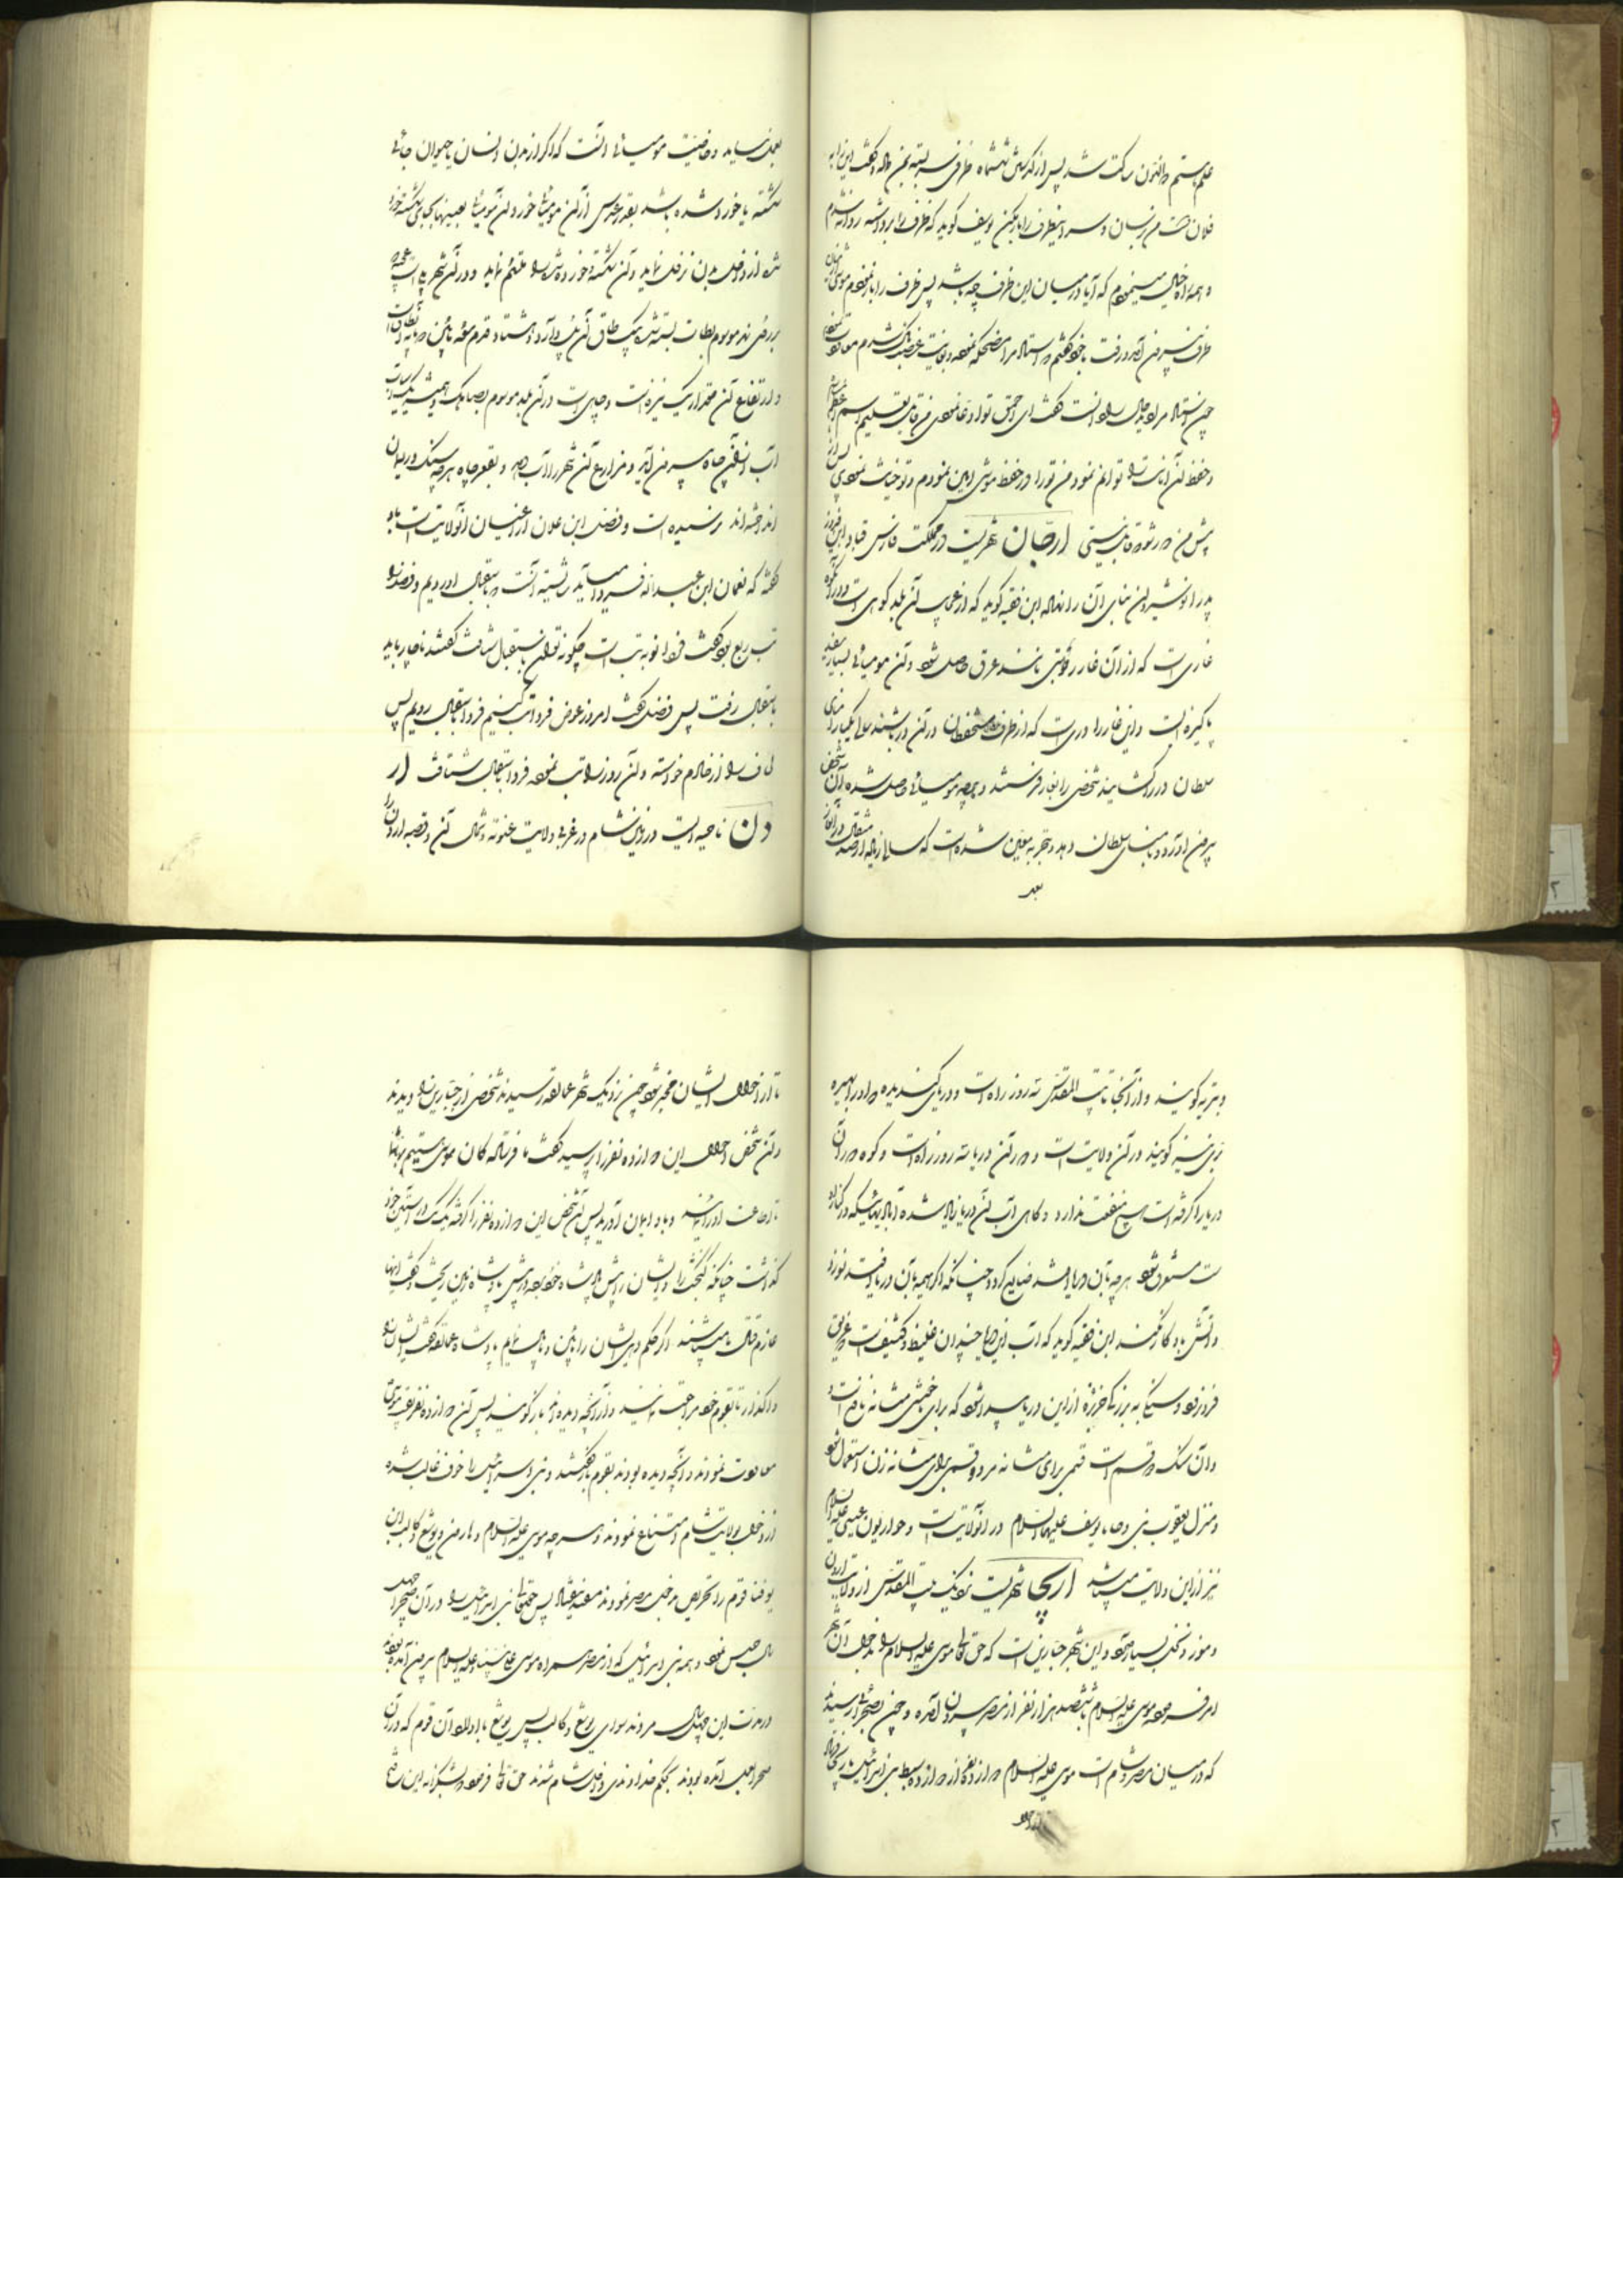 علم هستم ذالنون ساکت شد پس از گذشتن ششماه ظرفی سربسته بمن داد و گفت این را به
فلان شخص من برسان و سر این ظرف را باز مکن یوسف گوید که ظرف را برداشته روانه شدم
و همه راه خیال مینمودم که آیا در میان این ظرف چه باشد پس ظرف را باز نمودم موشی از میان
ظرف بیرون آمد و رفت با خود گفتم استاد مرا مضحکه نموده و بغایت غضبناک شدم
چون استاد مرا بدید حال را دانست گفت ای احمق تو ادعا نمودی که من قابل تعلیم اسم اعظم
و حفظ آن امانت توانم نمود من تو را در حفظ موشی امین نمودم و تو خیانت نمودی پس از
پیش من دور شو که قابل نیستی ارجان شهریست در مملکت فارس قباد ابن فیروز
پدر انوشیروان بنای آن را نهاده ابن فقیه گوید که از عجایب آن بلد کوهی است و در آن کوه
غاری است که از آن غار رطوبتی مانند عرق حاصل شود و آن مومیائی بسیار سفید
پاکیزه است و این غار را دری است که از طرف سلطان مستحفظان در آن در باشند سالی یکبار
سلطان در را گشاینده شخصی را بغار فرستند و هرچه مومیائی حاصل شده آن شخص
بیرون آورد و بامنای سلطان دهد و تجربه معین شده است که سالی زیاده از صد مثقال در آن غار
بعد
بعمل نیاید و خاصیت مومیائی آنست که اگر از بدن انسان یا حیوان جائی
شکسته یا خورد شده باشد بقدر عدس از آن مومیا خورد آن مومیا بعینها بجای شکسته و خورد
شده از داخل بدن نزول نماید و آن شکسته و خورده شده را ملتئم نماید و در آن شهر پلی است
بر روی نهر موسوم بطاب بسته شده یک طاق آن پل دارد هشتاد قدم
و ارتفاع آن مقدار یک نیزه است و چاهی است در آن بلد موسوم بصاهک و همیشه یک سیاب
آب از آن چاه بیرون آید و مزارع آن شهر را آب دهد و بقعر چاه هرچه سنگ و ریسمان
انداخته‌اند نرسیده است و فضل ابن علان از اعیان آنولایت است باو
گفتند که نعمان ابن عبدالله فردا میآید شایسته آنست که باستقبال او رویم و فضل را
تب ربع بود گفت فردا نوبه تب است چگونه توان باستقبال شتافت گفتند ناچار باید
باستقبال رفت پس فضل گفت امروز عوض فردا تب کنیم فردا باستقبال رویم پس
لحاف را از خادم خواسته و آن روز را تب نموده فردا باستقبال شتافت ار
دن ناحیه ایست در زمین شام در غربی ولایت غوطه و شمال آن و قصبه اردن را
و بتریه گویند و از آنجا تا بیت المقدس سه روز راه است و دریای گندیده که او را بحیره
نیز گویند در آن ولایت است و دور آن دریا سه روز راه است و کوه دور آن
دریا را گرفته است هیچ منفعت ندارد و گاهی آب آن دریا زیاد شده آبادیهائیکه در کنار او
ست مستغرق شود هرچه بآن دریا افتد ضایع گردد چنانکه اگر هیمه بآن دریا افتد نسوزد
و آتش باو کار نکند ابن فقیه گوید که آب این دریا چندان غلیظ و کثیف است که غریق
فرو نرود و سنگی به بزرگی خربزه از این دریا پیدا شود که برای مشانه نافع است
و آن سنگ دو قسم است قسمی برای مشانه مرد و قسمی برای مشانه زن استعمال شود
و منزل یعقوب نبی و چاه یوسف علیهما السلام در آنولایت است و حواریون عیسی علیه السلام
نیز از این ولایت میباشند اریحا شهریست نزدیک بیت المقدس از ولایت اردن
و موز و نخل بسیار دارد و این شهر جبارین است که حق تعالی موسی علیه السلام را بدخول آن شهر
امر فرموده موسی علیه السلام با ششصد هزار نفر از مصر بیرون آمده و چون بصحرا رسیدند
که در میان مصر و شام است موسی علیه السلام دوازده نفر از دوازده سبط بنی اسرائیل باریحا فرستاد
تا از احوال
تا از احوال ایشان مخبر شود چون نزدیک شهر عمالقه رسیدند شخصی از جبارین را دیدند
و آن شخص احوال این دوازده نفر را پرسید گفتند ما فرستادگان موسی هستیم
تا اطاعت او را نمائید و باو ایمان آورید پس آن شخص این دوازده نفر را گرفته یک یک در آستین خود
گذاشت چنانکه گنجشک را و ایشان را پیش پادشاه خود برده و در پیش پادشاه بزمین ریخت و گفت اینها
عازم قتال ما میباشند اگر حکم دهی ایشان را باین پا پایمال نمایم پادشاه عمالقه گفت ایشان را
واگذار تا بقوم خود مراجعت نمایند و از آنچه دیده‌اند باز گویند پس آن دوازده نفر بقوم موسی
معاودت نمودند و آنچه دیده بودند بقوم باز گفتند و بنی اسرائیل را خوف غالب شده
از دخول بولایت شام امتناع نمودند و هرچه موسی علیه السلام و هارون و یوشع و کالب ابن
یوفنا قوم را تحریص بدخول نمودند مفید نیفتاد پس حق تعالی بنی اسرائیل را در آن صحرا چهل
سال حبس نمود و همه بنی اسرائیل که از مصر همراه موسی علی نبینا و علیه السلام بیرون آمده بودند
در مدت این چهل سال مردند سوای یوشع و کالب پس یوشع با اولاد آن قوم که در آن
صحرا بعمل آمده بودند بحکم خداوندی داخل شام شدند حق تعالی فرمود بشکرانه این